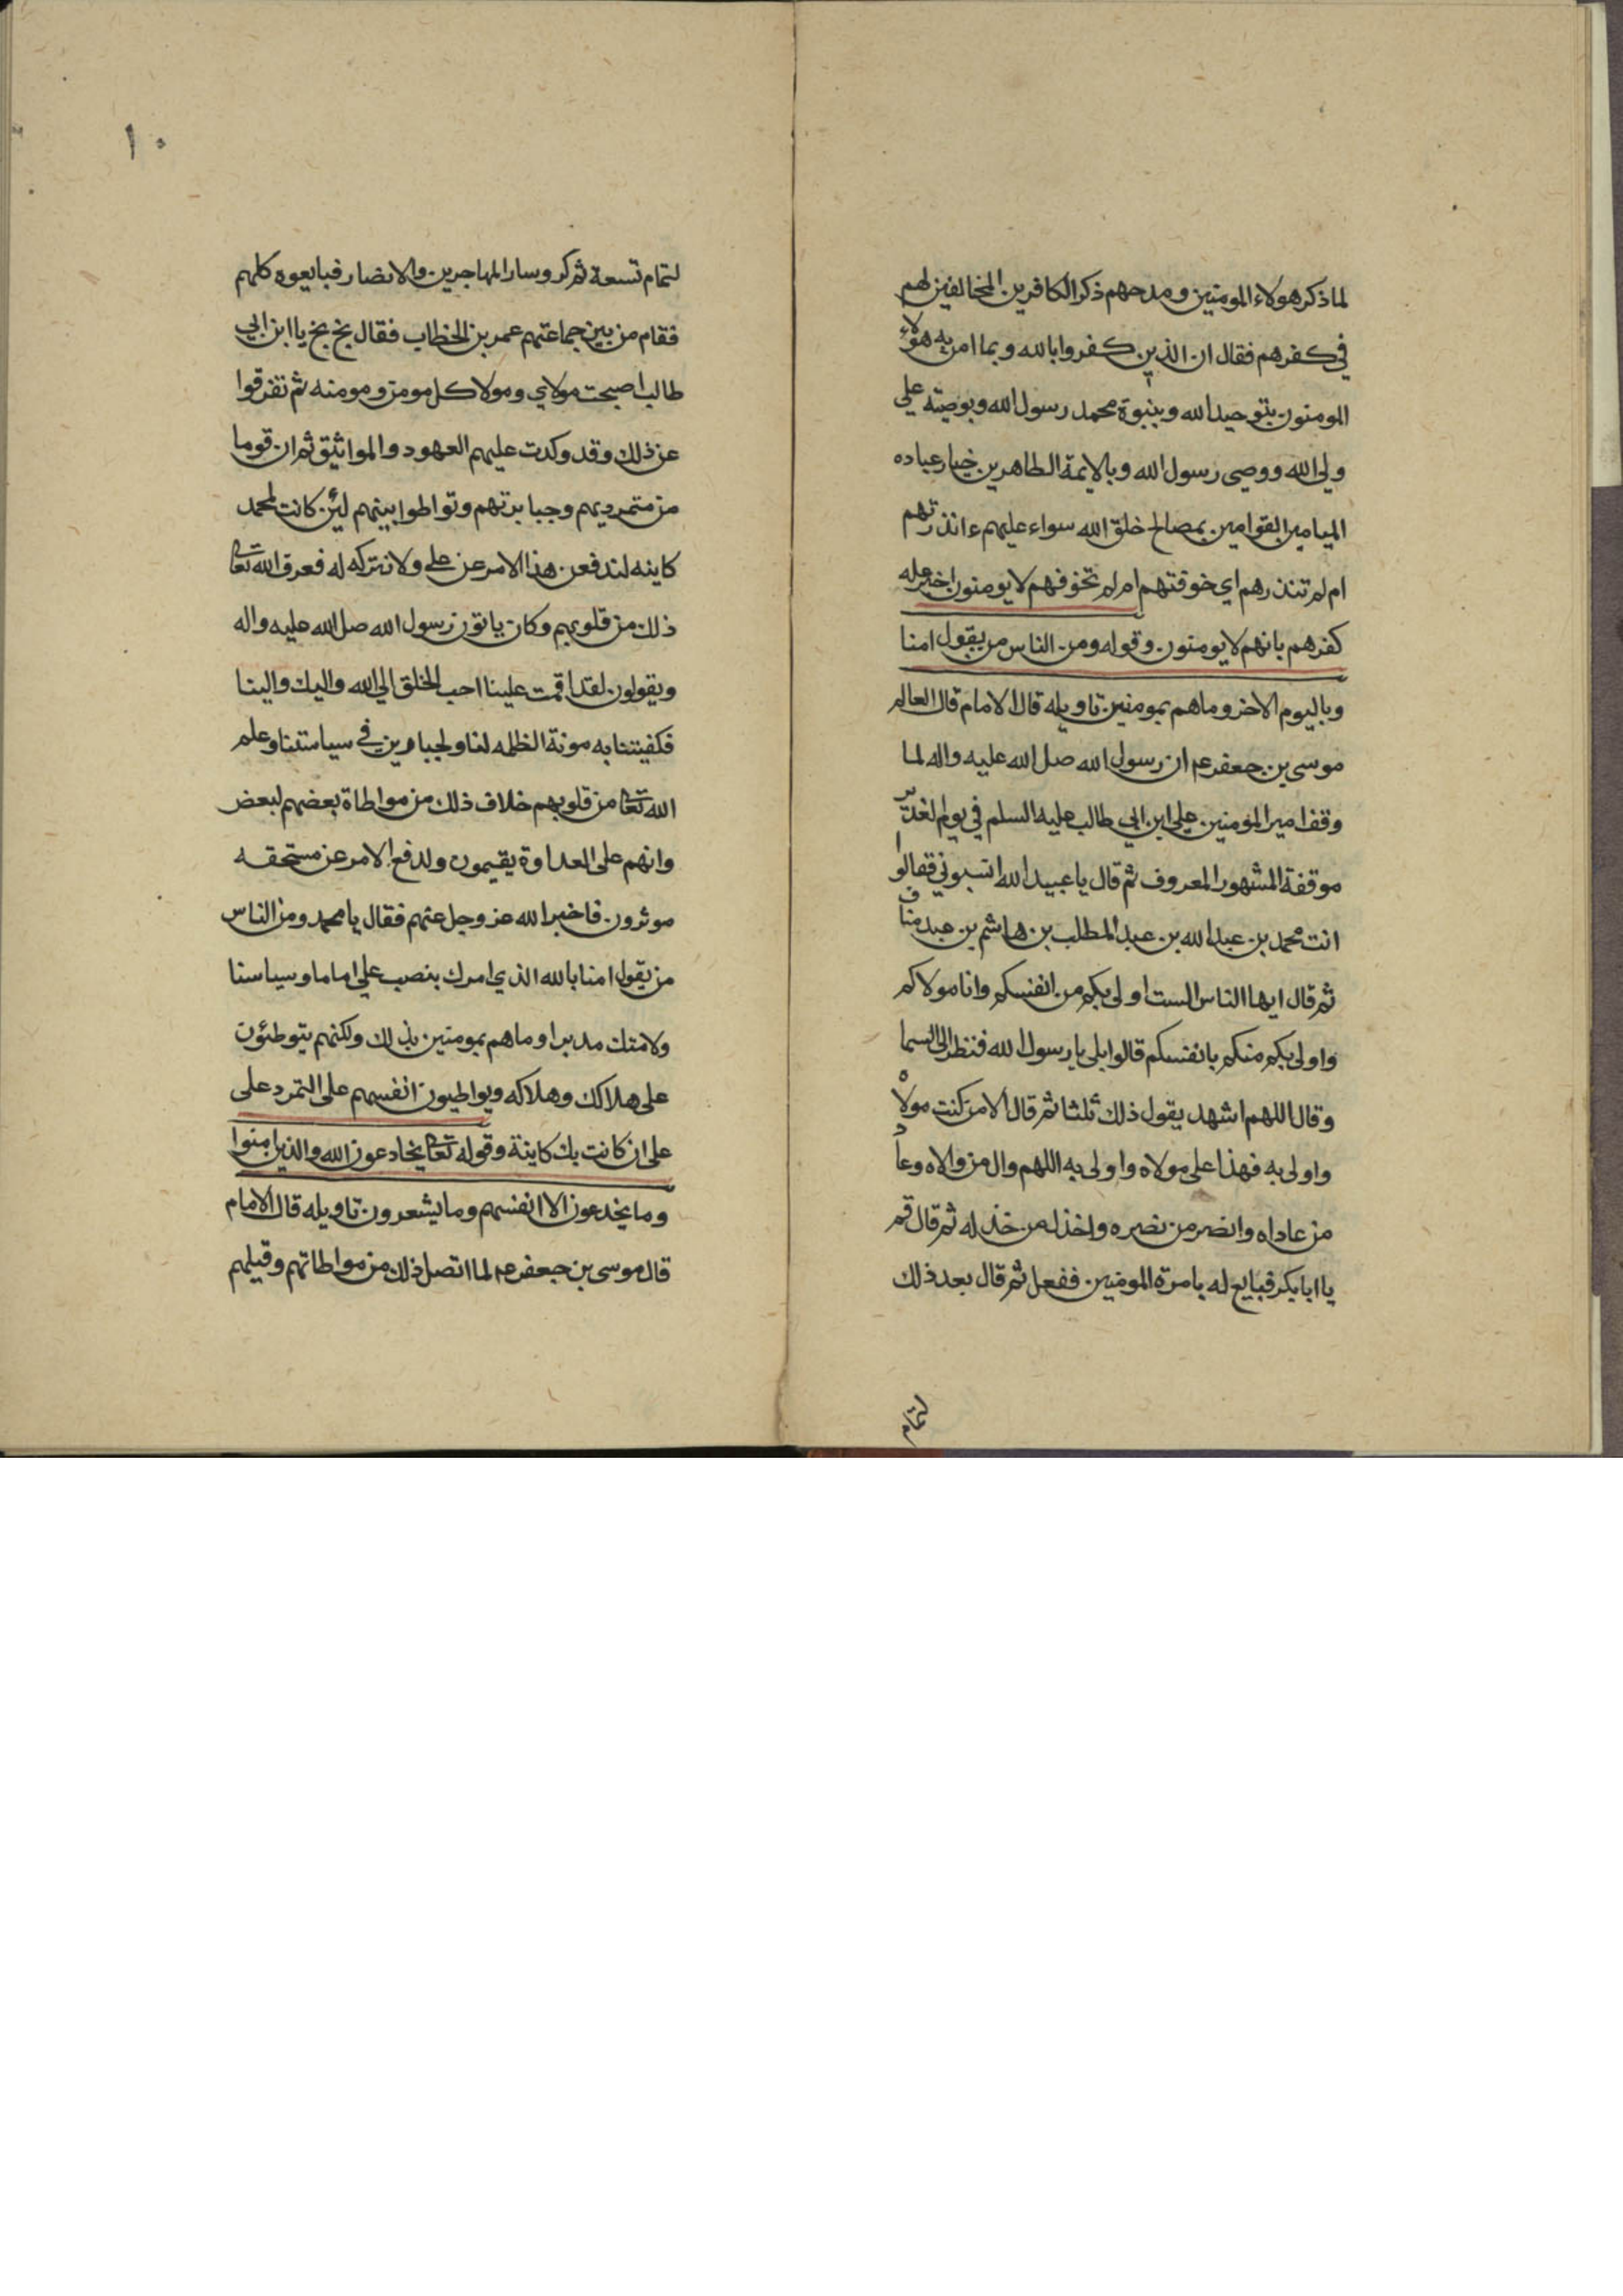 لما ذكر هولاء المومنين ومدحهم ذكر الكافرين المخالفين لهم
في كفرهم فقال ان الذين كفروا بالله وبما امن به هولاء
المومنون بتوحيد الله وبنبوة محمد رسول الله وبوصيته علي
ولي الله ووصى رسول الله وبالايمة الطاهرين خيار عباده
الميامين القوامين بمصالح خلق الله سواء عليهم ءانذرتهم
ام لم تنذرهم اي خوفتهم ام لم تخوفهم لا يومنون اخبر عله
كفرهم بانهم لا يومنون وقوله ومن الناس من يقول امنا
وباليوم الاخر وما هم بمومنين تاويله قال الامام قال العالم
موسى بن جعفر عم ان رسول الله صل الله عليه واله لما
وقف امير المومنين علي ابن ابي طالب عليه السلم في يوم الغدير
موقفة المشهور المعروف ثم قال يا عبيد الله انسبوني فقالوا
انت محمد بن عبد الله بن عبد المطلب بن هاشم بن عبد مناف
ثم قال ايها الناس الست اولى بكم من انفسكم وانا مولاكم
واولى بكم منكم بانفسكم قالوا بلى يا رسول الله فنظر الى السما
وقال اللهم اشهد يقول ذلك ثلثا ثم قال الا من كنت مولاه
واولى به فهذا على مولاه واولى به اللهم وال من والاه وعاد
من عاداه وانصر من نصره واخذل من خذله ثم قال قم
يا ابا بكر فبايع له بامرة المومنين ففعل ثم قال بعد ذلك
لتمام
١٠
لتمام تسعة ثم كر وسار المهاجرين والانصار فبايعوه كلهم
فقام من بين جماعتهم عمر بن الخطاب فقال بخ بخ يا ابن ابي
طالب اصبحت مولاي ومولا كل مومن ومومنه ثم تفرقوا
عن ذلك وقد وكدت عليهم العهود والمواثيق ثم ان قوما
من متمرديهم وجبابرتهم وتواطوا بينهم لئن كانت لمحمد
كاينه لندفعن هذا الامر عن على ولا نتركه له فعرف الله تعا
ذلك من قلوبهم وكان ياتون رسول الله صل الله عليه واله
ويقولون لقد اقمت علينا احب الخلق الى الله واليك والينا
فكفيتنا به مونة الظلمه لنا ولجبارين في سياستنا وعلم
الله تعا من قلوبهم خلاف ذلك من مواطاة بعضهم لبعض
وانهم على العداوة يقيمون ولدفع الامر عن مستحقه
موثرون فاخبر الله عز وجل عنهم فقال يا محمد ومن الناس
من يقول امنا بالله الذي امرك بنصب علي اماما وسياسنا
ولامتك مدبرا وما هم بمومنين بذلك ولكنهم يتوطئون
على هلاكك وهلاكه ويواطيون انفسهم على التمرد على
على ان كانت بك كاينة وقوله تعا يخادعون الله والذين امنوا
وما يخدعون الا انفسهم وما يشعرون تاويله قال الامام
قال موسى بن جعفر عم لما اتصل ذلك من مواطاتهم وقيلهم